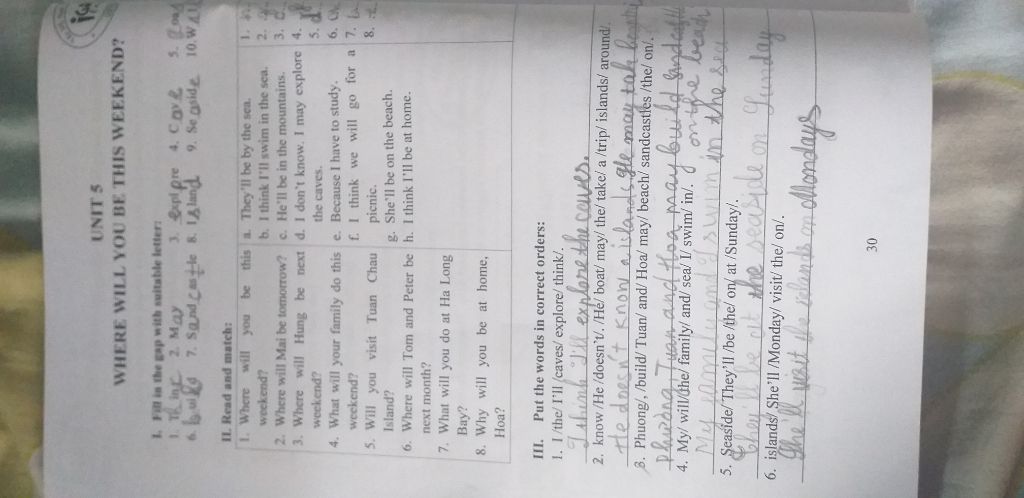 UNIT 5
WHERE WILL YOU BE THIS WEEKEND?
I. Fill in the gap with suitable letter:
1. Th in k 2. May 3. expl pre 4. Cave 5.
6. build 7. Sandcastle 8. Island 9. Seaside 10.
II. Read and match:
1. Where will you be this weekend?
2. Where will Mai be tomorrow?
3. Where will Hung be next weekend?
4. What will your family do this weekend?
5. Will you visit Tuan Chau Island?
6. Where will Tom and Peter be next month?
7. What will you do at Ha Long Bay?
8. Why will you be at home, Hoa?
a. They'll be by the sea.
b. I think I'll swim in the sea.
c. He'll be in the mountains.
d. I don't know. I may explore the caves.
e. Because I have to study.
f. I think we will go for a picnic.
g. She'll be on the beach.
h. I think I'll be at home.
1.
2.
3.
4.
5. d
6.
7.
8.
III. Put the words in correct orders:
1. I /the/ I'll /caves/ explore/ think/.
I think I'll explore the caves.
2. know /He /doesn't/. /He/ boat/ may/ the/ take/ a /trip/ islands/ around/.
He doesn't know a island gle may tak
3. Phuong/, /build/ Tuan/ and/ Hoa/ may/ beach/ sandcastles /the/ on/.
Phuong Tuan and Hoa may build on the beach
4. My/ will/ the/ family/ and/ sea/ I/ swim/ in/.
My family and I swim in the sea
5. Seaside/ They'll /be /the/ on/ at /Sunday/.
be at the seaside on Sunday
6. islands/ She'll /Monday/ visit/ the/ on/.
She'll visit the islands on Mondays
30